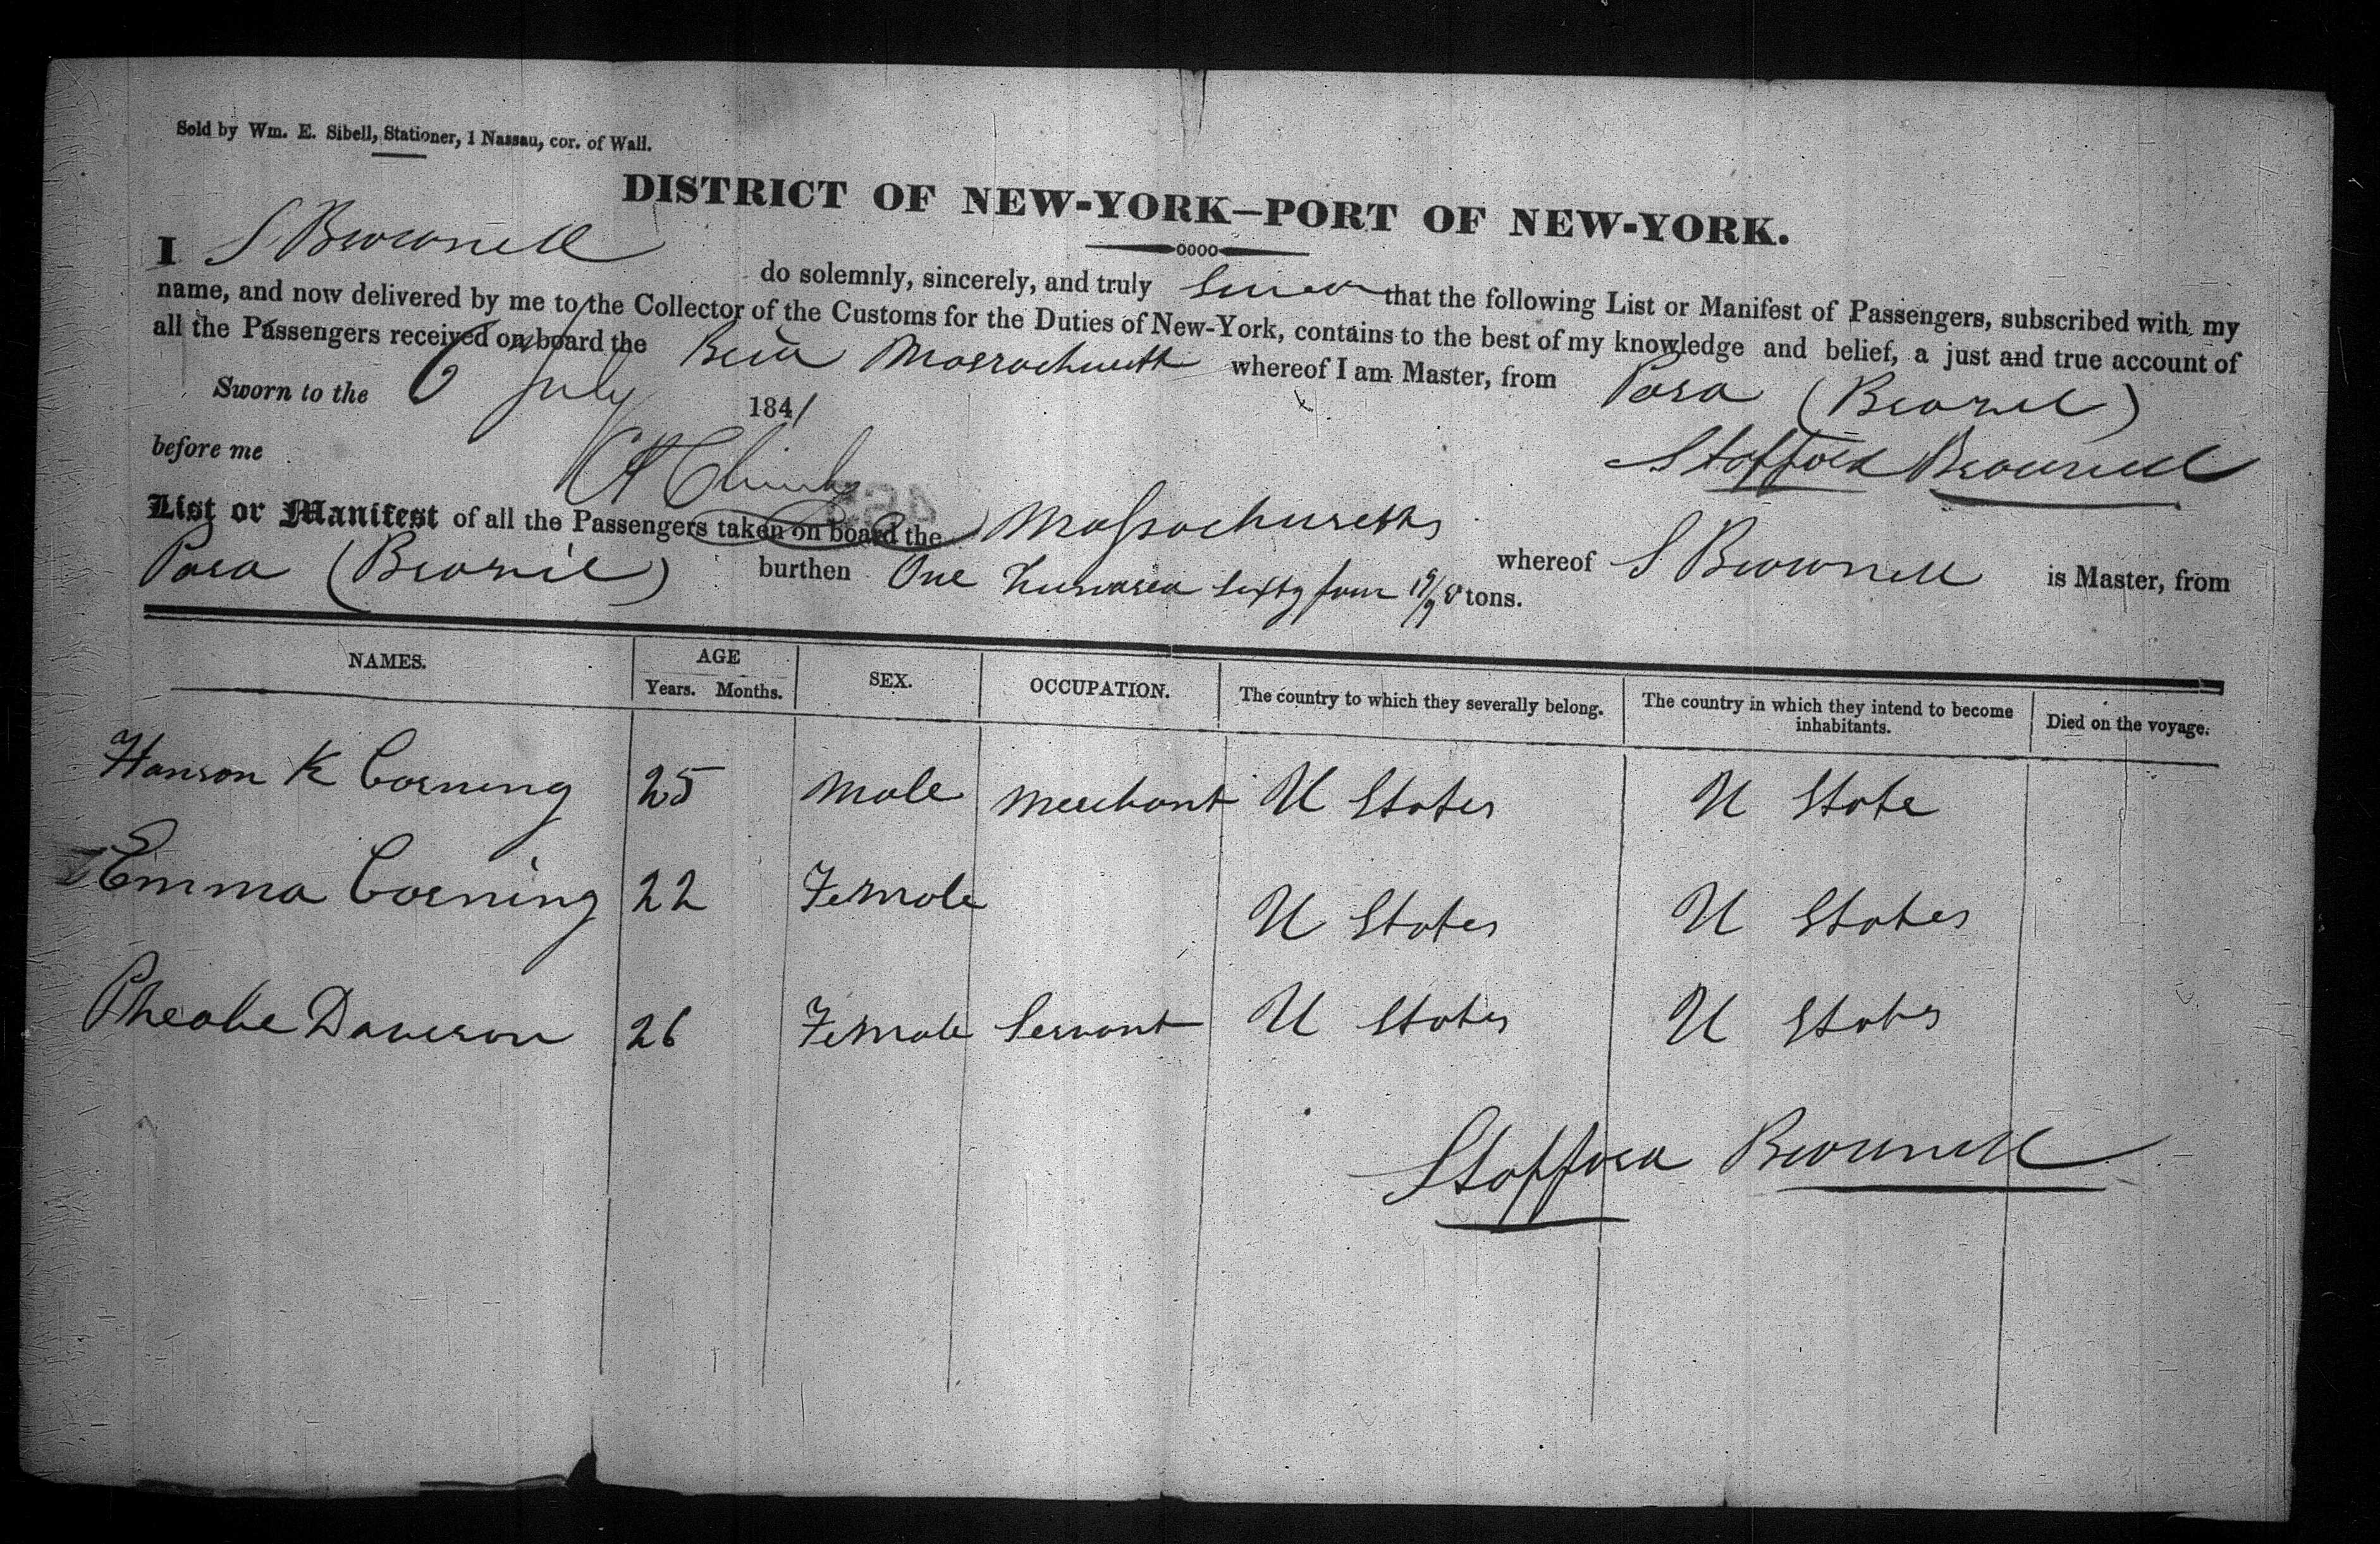 Sold by Wm. E. Sibell, Stationer, 1 Nassau, cor. of Wall.
DISTRICT OF NEW-YORK—PORT OF NEW-YORK.
I S Brownell do solemnly, sincerely, and truly swear that the following List or Manifest of Passengers, subscribed with my
name, and now delivered by me to the Collector of the Customs for the Duties of New-York, contains to the best of my knowledge and belief, a just and true account of
all the Passengers received on board the Massachusetts whereof I am Master, from Para (Brazil)
Sworn to the 6 July 1841
before me
Stafford Brownell
List or Manifest of all the Passengers taken on board the Massachusetts whereof S Brownell is Master, from
Para (Brazil) burthen One hundred sixty four tons.
NAMES. AGE SEX. OCCUPATION. The country to which they severally belong. The country in which they intend to become inhabitants. Died on the voyage.
Years. Months.
Hanson K Corning 25 Male Merchant U States U State
Emma Corning 22 Female U States U States
Pheobe Dawerson 26 Female Servant U States U States
Stafford Brownell